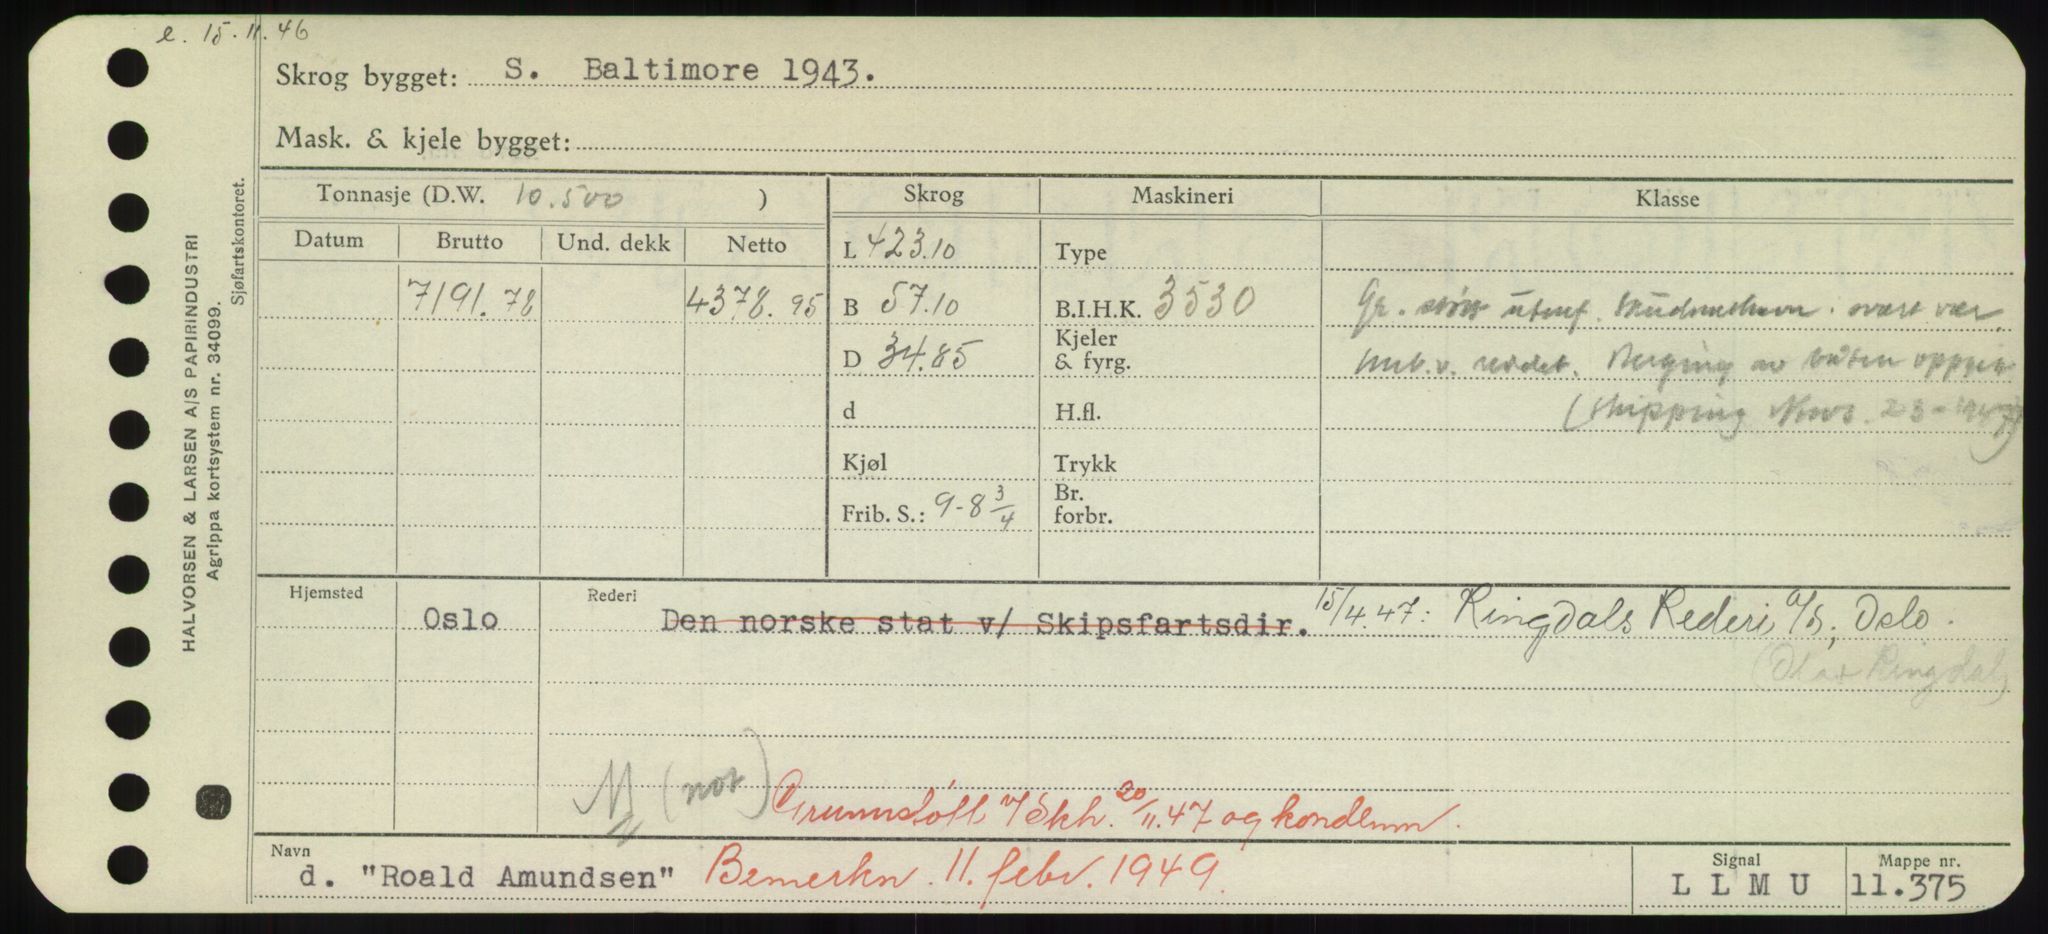 e. 15.11.46
Skrog bygget: S. Baltimore 1943.
Mask. & kjele bygget:
Tonnasje (D.W. 10.500 ) Skrog Maskineri Klasse
Datum Brutto Und. dekk Netto L 423.10 Type
7191.78 4378.95 B 57.10 B.I.H.K. 3530 Gr. støtt utenf. svært vær.
D 34.85 Kjeler & fyrg. reddet. Berging av båten oppgitt
d H.fl. (Shipping News 23- 1947)
Kjøl Trykk
Frib. S.: 9-8 3/4 Br. forbr.
Hjemsted Oslo Rederi Den norske stat v/ Skipsfartsdir. 15/4.47: Ringdals Rederi A/S, Oslo.
(Olav Ringdal)
(not) Grunnstøtt v/Skh. 20/11.47 og kondemn.
Navn d. "Roald Amundsen" Bemerkn. 11. febr. 1949. Signal L L M U Mappe nr. 11.375
HALVORSEN & LARSEN A/S PAPIRINDUSTRI
Agrippa kortsystem nr. 34099.
Sjøfartskontoret.